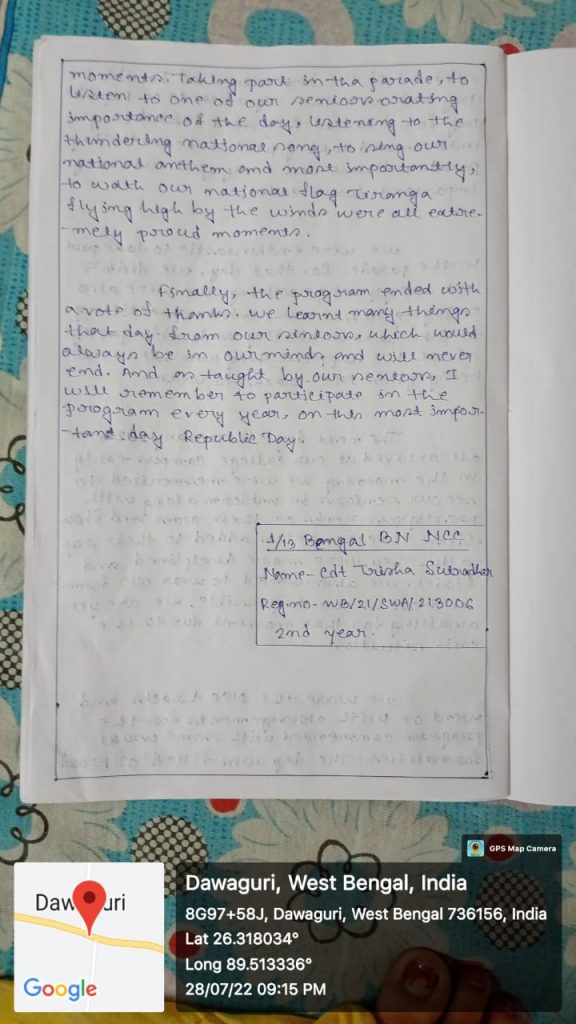 moments. Taking part in tha parade, to
listen to one of our seniors orating
importance of the day, listening to the
thundering national song, to sing our
national anthem and most importantly,
to wath our national flag Tiranga
flying high by the winds were all extre-
-mely proud moments.
Finally, the program ended with
a vote of thanks. we learnt many things
that day from our seniors, which would
always be in our minds and will never
end. And as taught by our seniors, I
will remember to participate in the
program every year, on this most impor-
-tant day Republic Day.
1/13 Bengal BN NCC
Name- Cdt Trisha Sutradhar
Reg no- WB/21/SWA/213006
2nd year.
GPS Map Camera
Dawaguri, West Bengal, India
8G97+58J, Dawaguri, West Bengal 736156, India
Lat 26.318034°
Long 89.513336°
28/07/22 09:15 PM
Google